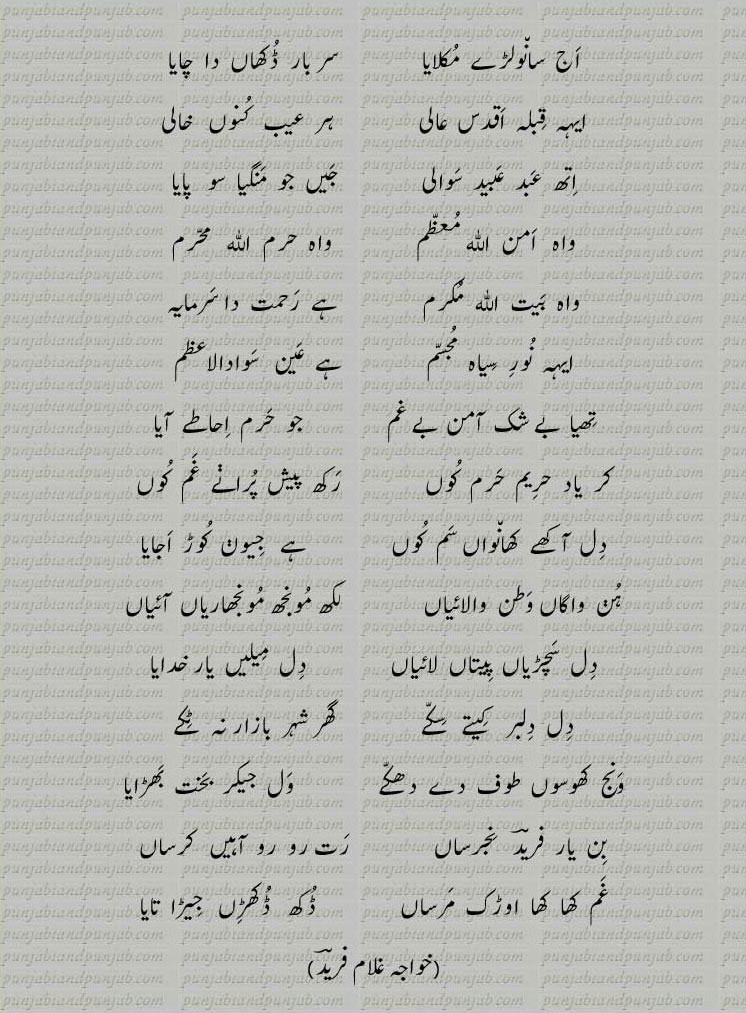 اَج سانّولڑے مُکلایا سر بار ڈُکھاں دا چایا
ایہہ قِبلہ اَقدس عالی ہر عیب کُنوں خالی
اِتھ عَبد عَبید سَوالی جَیں جو مَنگیا سو پایا
واہ اَمن اللہ مُعظّم واہ حرم اللہ محّرم
واہ بَیت اللہ مُکرم ہے رَحمت دا سَرمایہ
ایہہ نُورِ سِیاہ مُجسّم ہے عَین سَوادالاعظم
تِھیا بے شک آمن بے غم جو حَرم اِحاطے آیا
کر یاد حرِیم حَرم کُوں رَکھ پیش پُراݨے غَم کُوں
دِل آکھے کھانّواں سَم کُوں ہے جِیوݨ کُوڑ اَجایا
ہُݨ واگاں وَطن والائیاں لکھ مُونجھ مُونجھاریاں آئیاں
دِل سَچڑیاں پِیتاں لائیاں دِل مِیلیں یار خدایا
دِل دِلبر کِیتے سِکّے گھر شہر بازار نہ ٹِکے
وَنج کھوسوں طوف دے دھکّے وَل جیکر بَخت بَھڑایا
بِن یار فریدؔ نجرساں رَت رو رو آہیں کرساں
غَم کھا کھا اوڑک مَرساں ڈُکھ ڈُکھڑِں جِیڑا تایا
(خواجہ غلام فریدؔ)
punjabiandpunjab.com